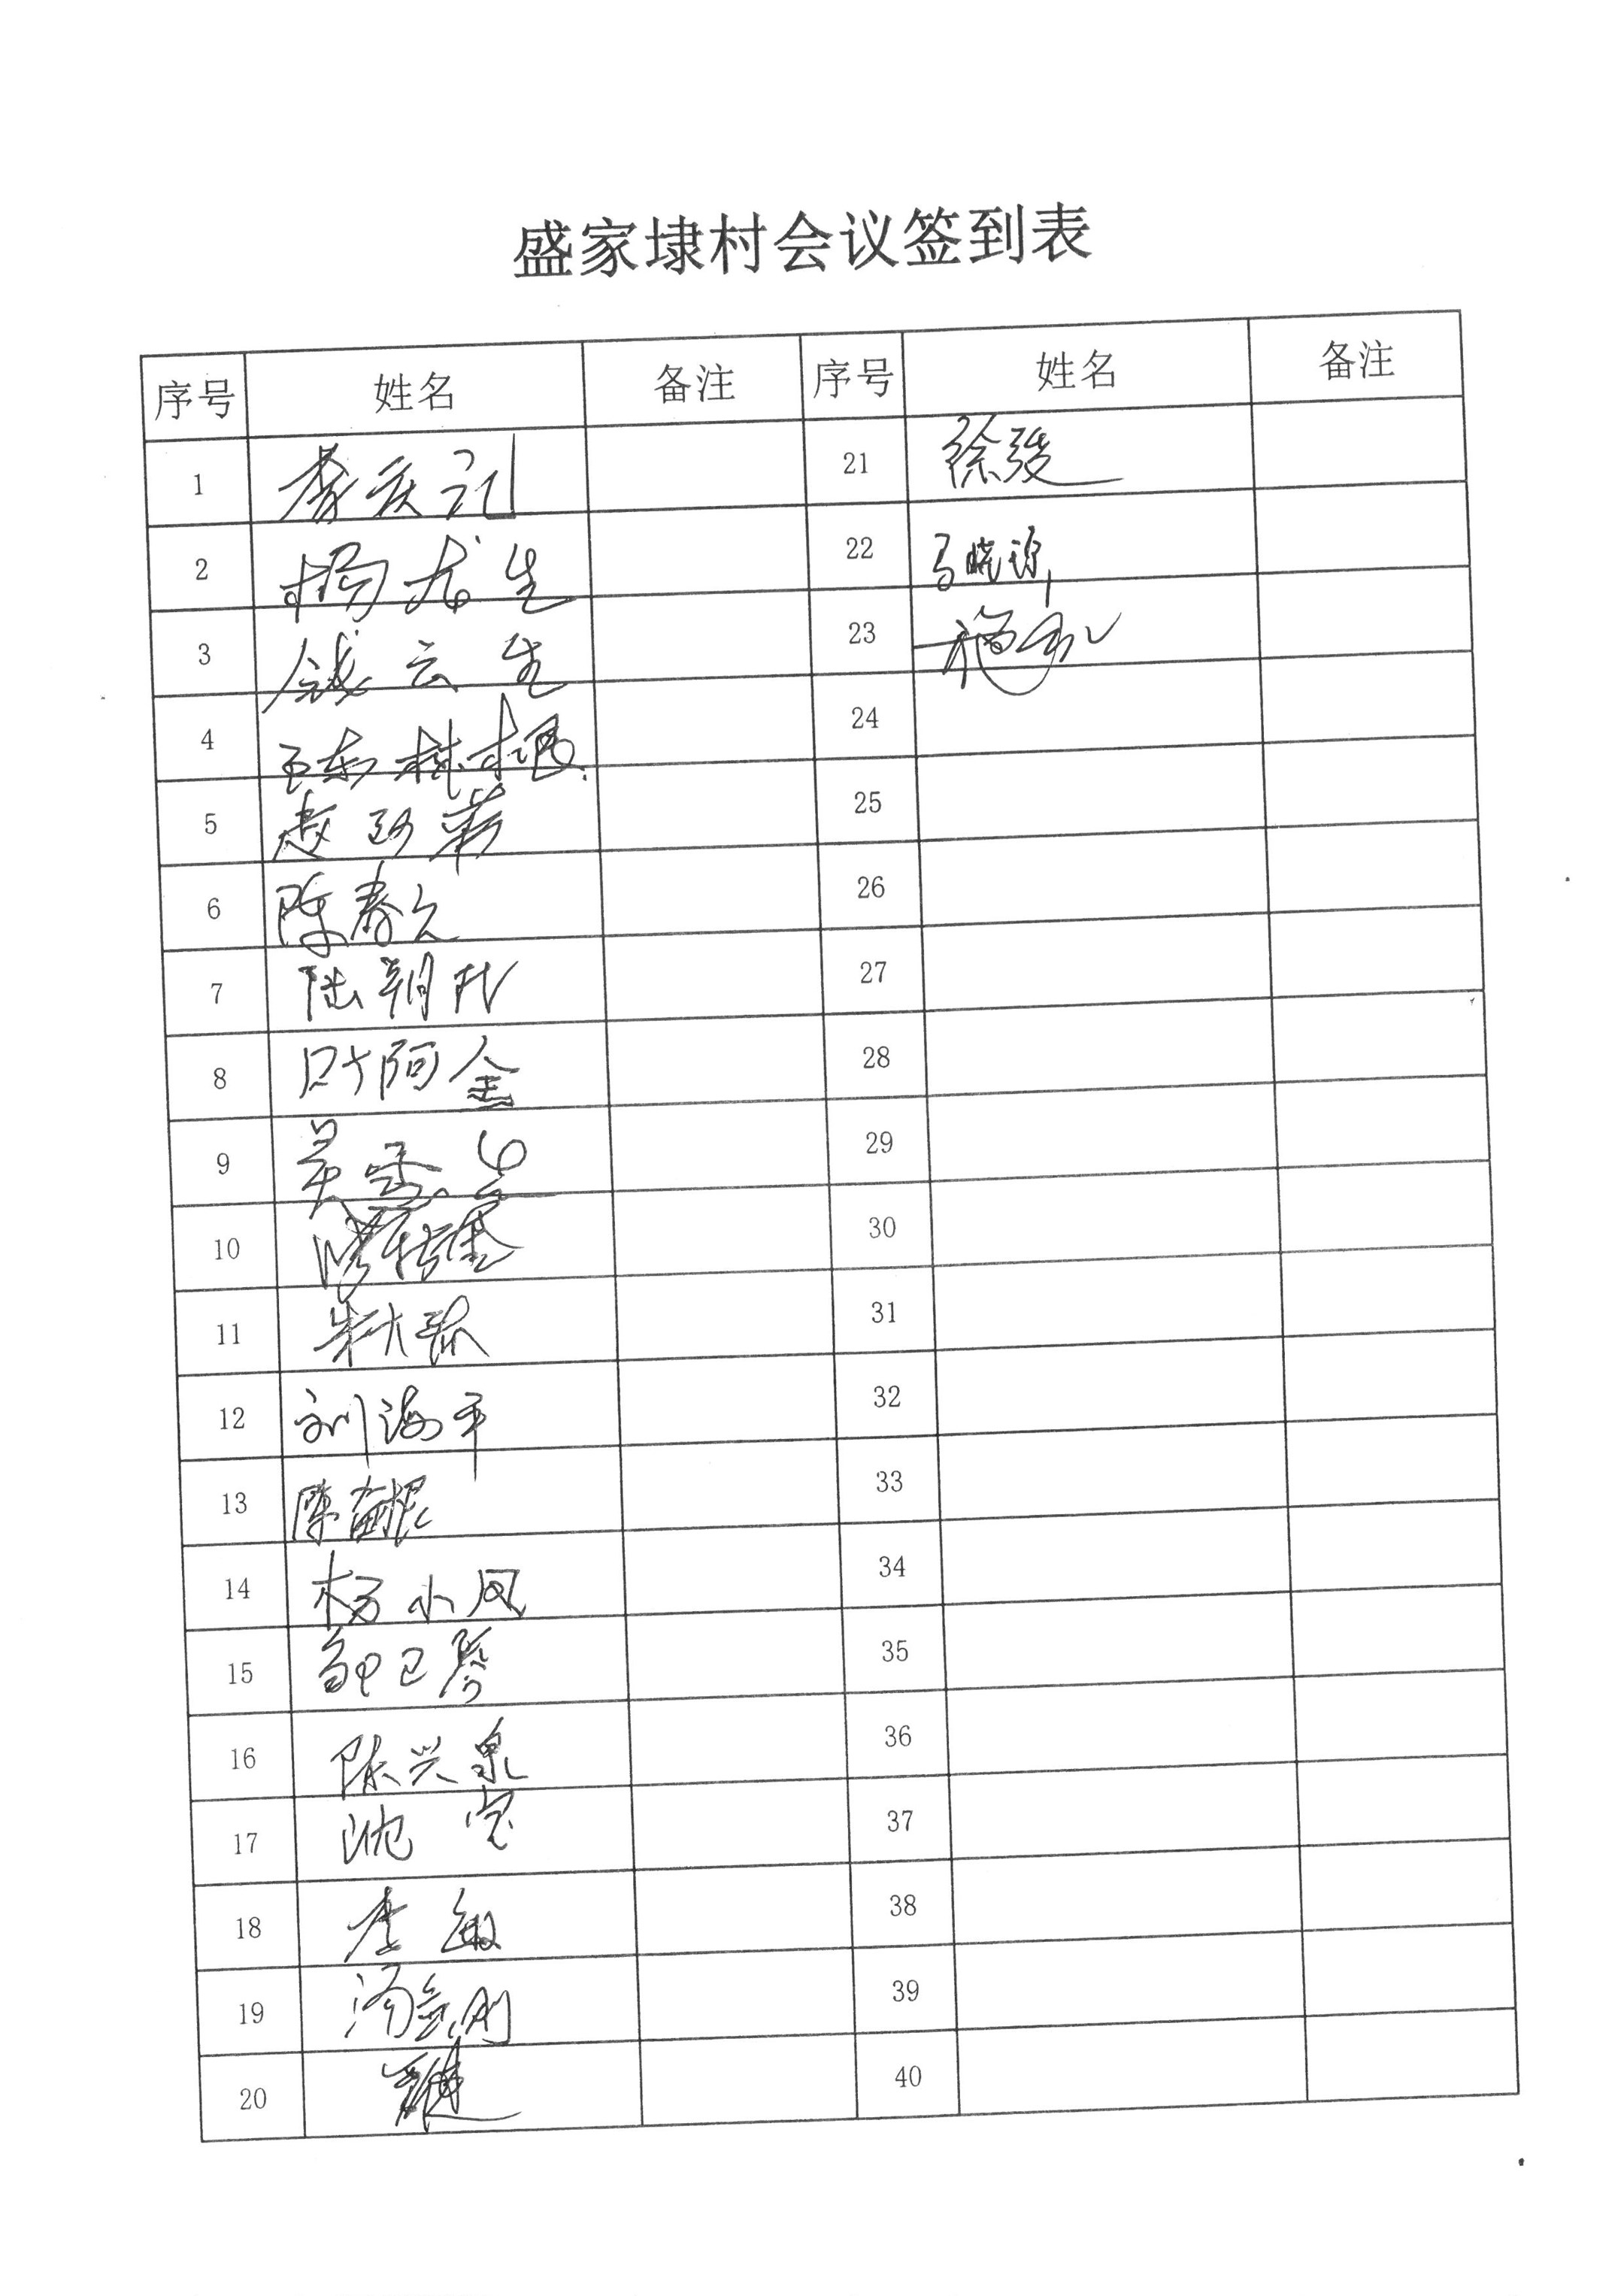 盛家埭村会议签到表
序号 姓名 备注 序号 姓名 备注
1 李庆 21 徐骏
2 杨龙生 22 马晓
3 钱云生 23 施
4 树根 24
5 赵 25
6 陈春 26
7 陆朝 27
8 叶阿金 28
9 吴雪 29
10 30
11 朱大 31
12 刘海平 32
13 陈 根 33
14 杨小凤 34
15 邹卫琴 35
16 陈兴泉 36
17 沈宝 37
18 李敏 38
19 汤 刚 39
20 40